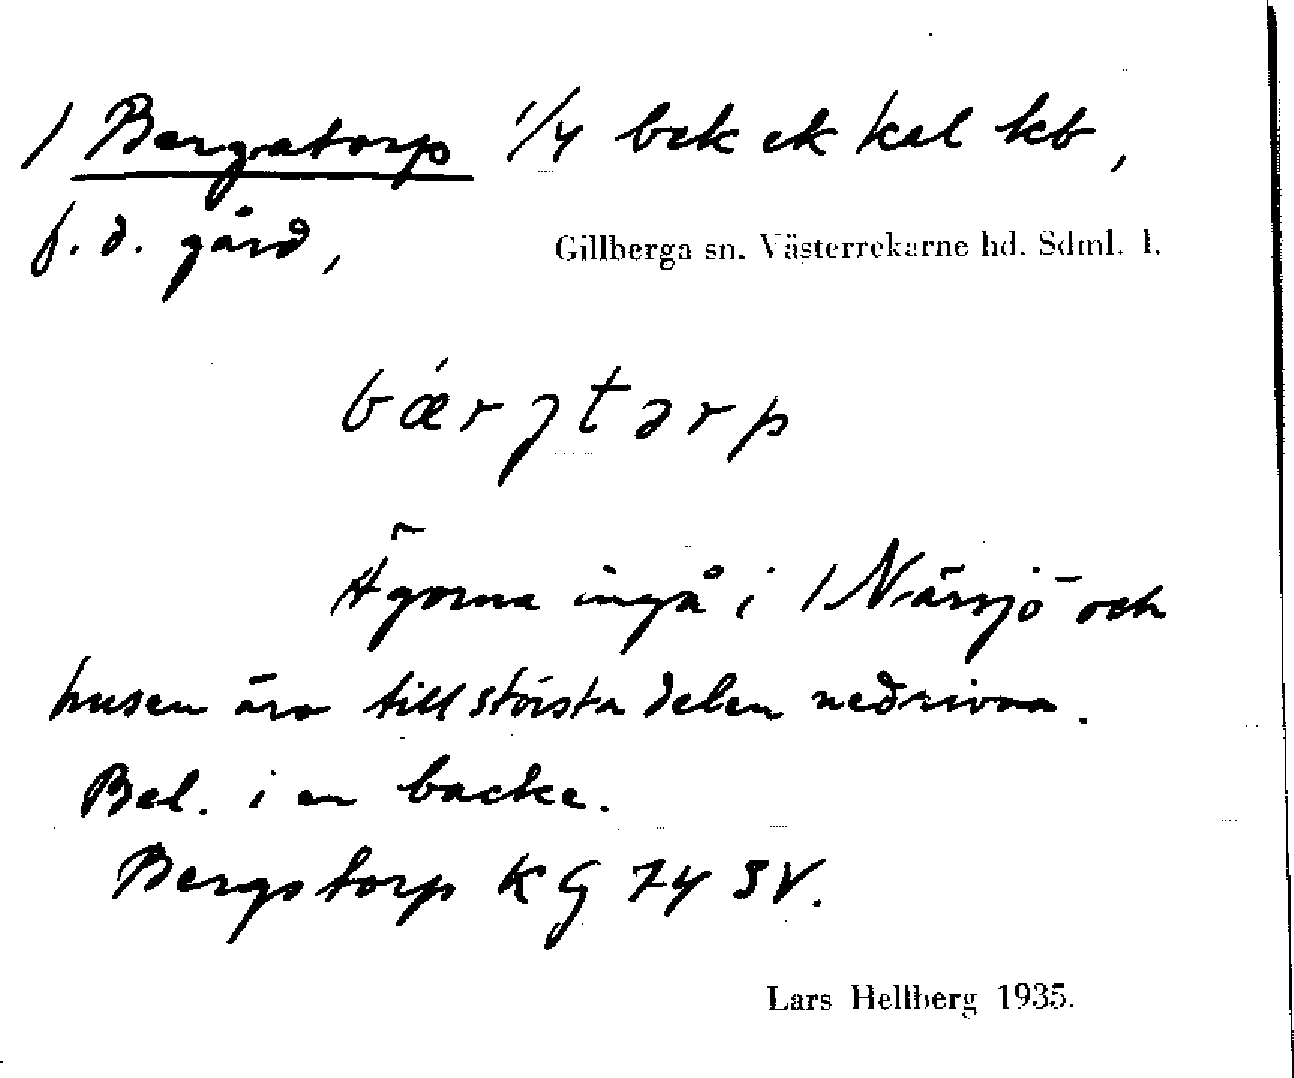 1 Bergatorp 1/4 bek ek kal kb,
f.d. gård,
Gillberga sn. Västerrekarne hd. Sdml. l.
bǽrjtɔrp
Ägorna ingå i 1 Närsjö och
husen äro till största delen nedrivna.
Bel. i en backe.
Bergstorp KG 74 SV.
Lars Hellberg 1935.